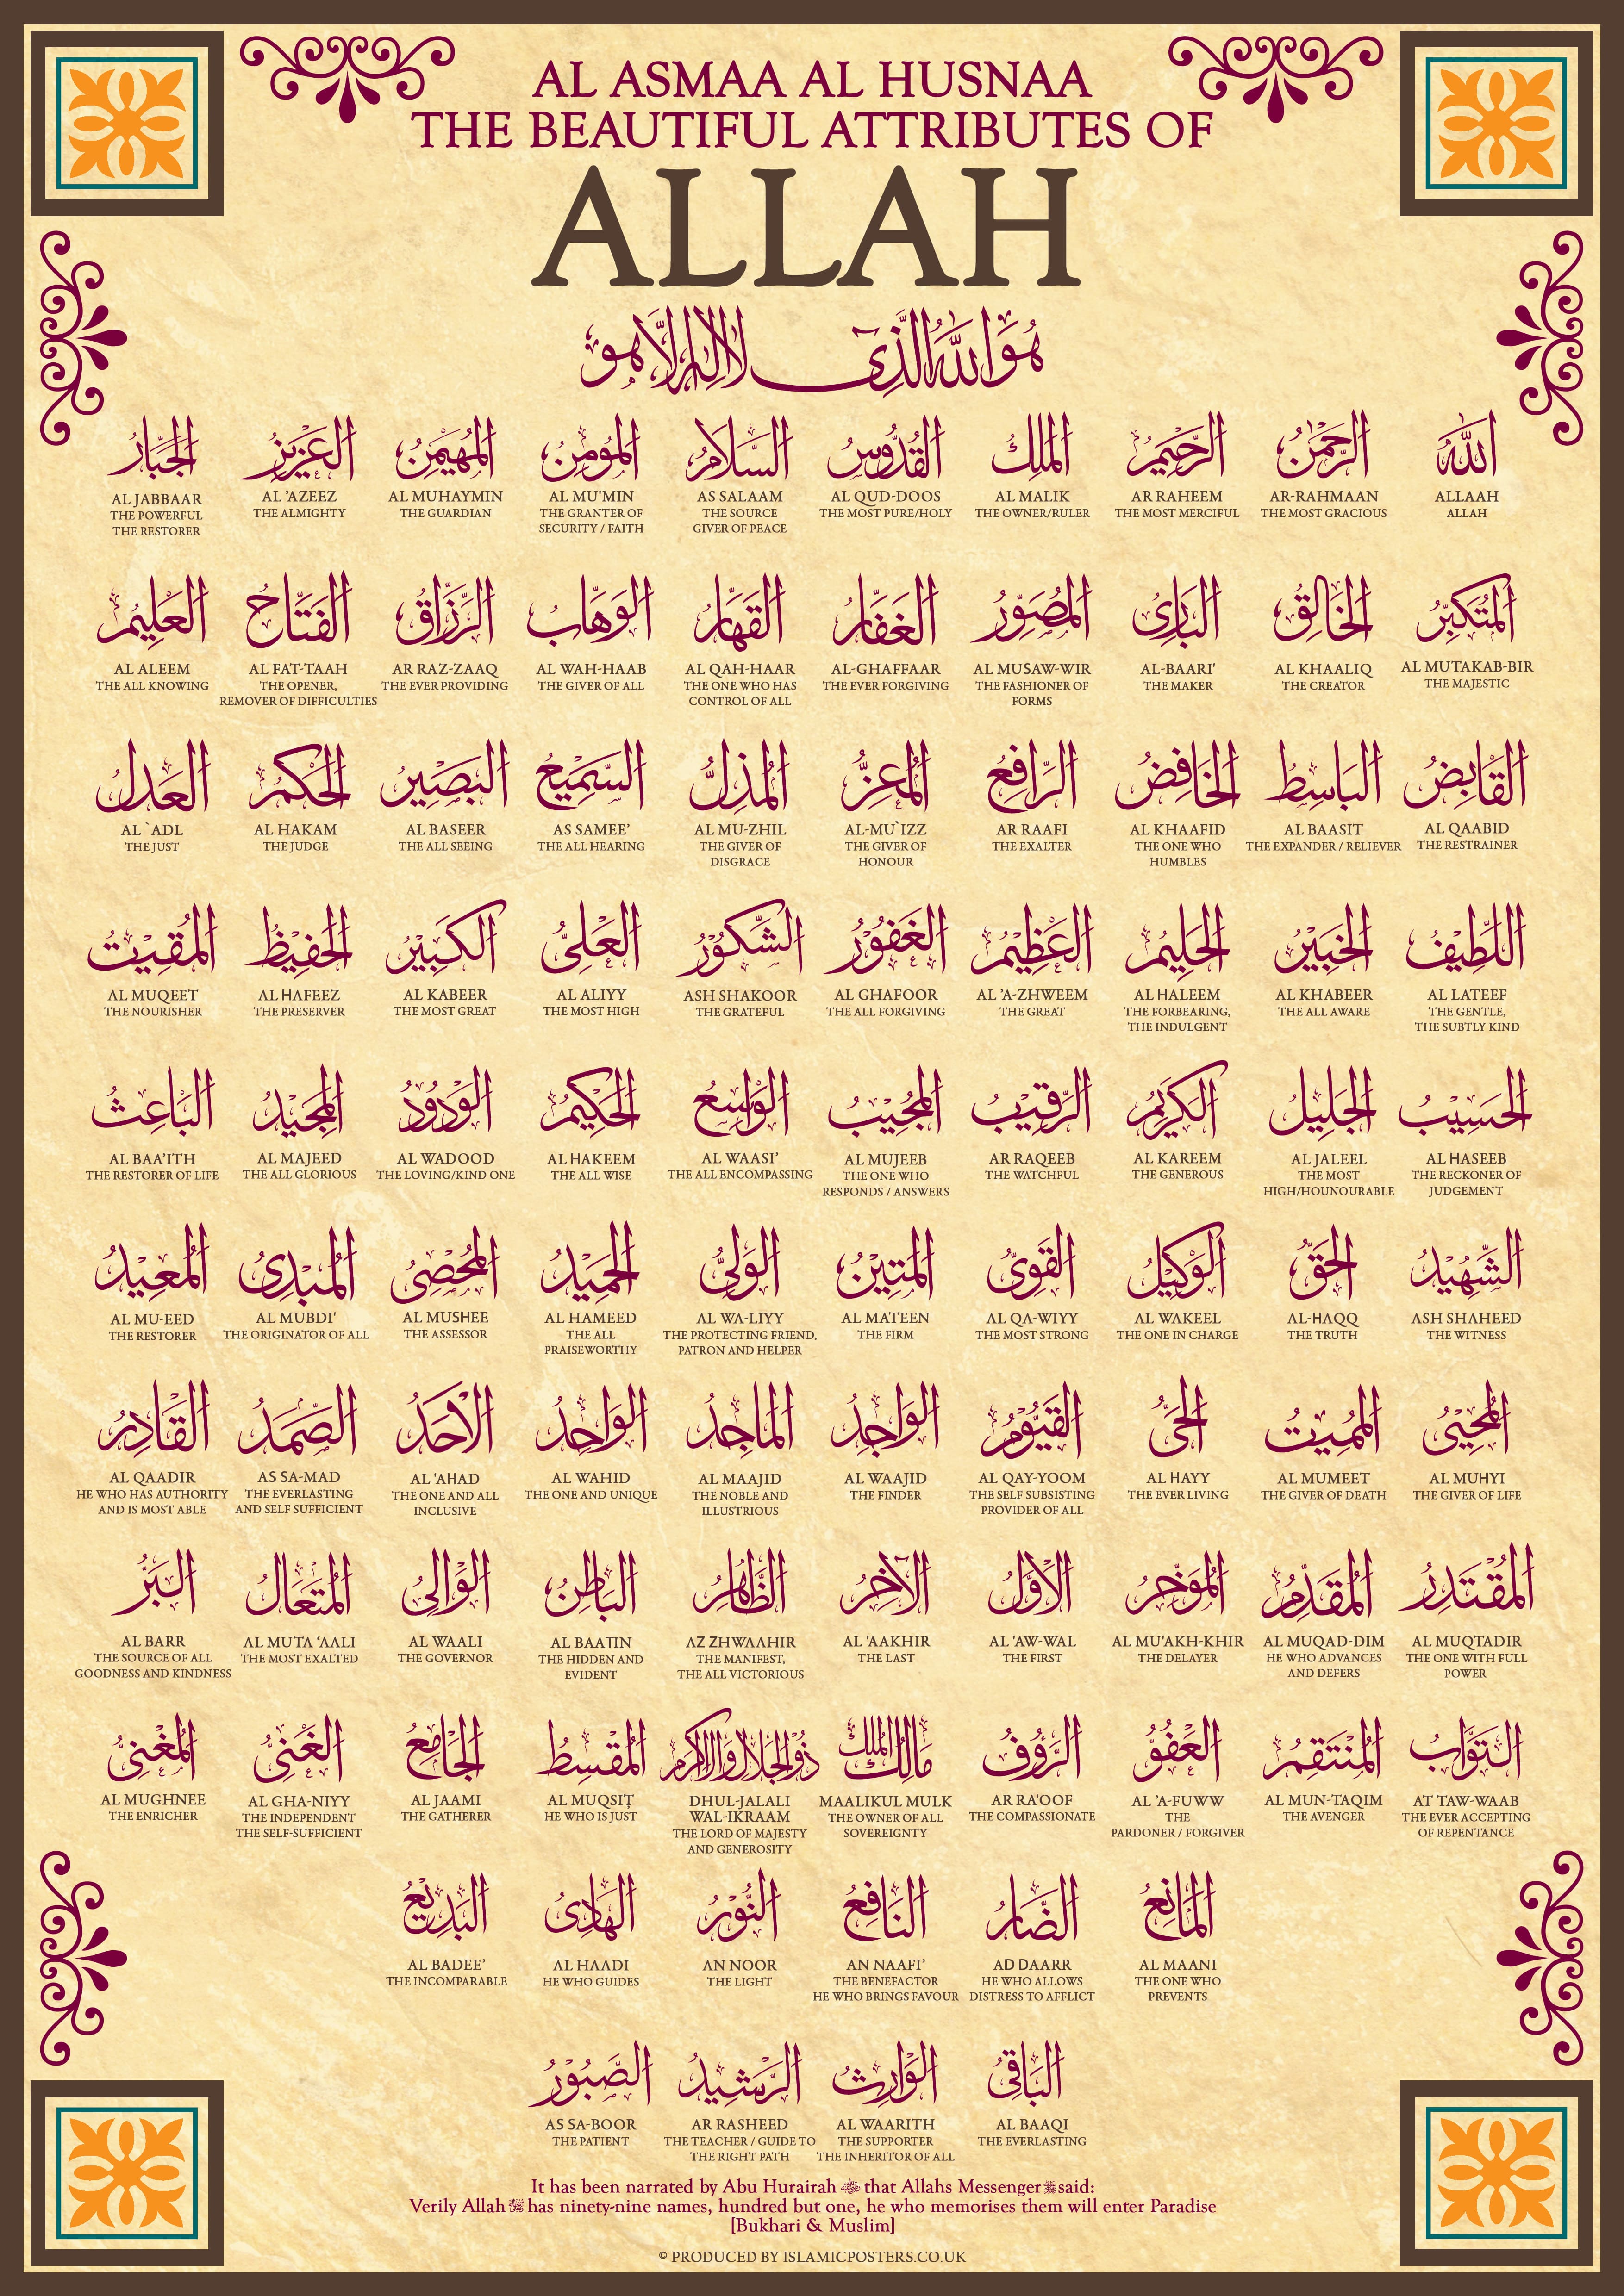 AL ASMAA AL HUSNAA
THE BEAUTIFUL ATTRIBUTES OF
ALLAH
هُوَ اللهُ الَّذِي لَا إِلٰهَ إِلَّا هُوَ
الله الرَّحْمٰنُ الرَّحِيْمُ المَلِكُ القُدُّوسُ السَّلَامُ المُؤْمِنُ المُهَيْمِنُ العَزِيزُ الجَبَّارُ
ALLAAH AR-RAHMAAN AR RAHEEM AL MALIK AL QUD-DOOS AS SALAAM AL MU'MIN AL MUHAYMIN AL 'AZEEZ AL JABBAAR
ALLAH THE MOST GRACIOUS THE MOST MERCIFUL THE OWNER/RULER THE MOST PURE/HOLY THE SOURCE THE GRANTER OF THE GUARDIAN THE ALMIGHTY THE POWERFUL
GIVER OF PEACE SECURITY / FAITH THE RESTORER
المُتَكَبِّرُ الخَالِقُ البَارِئُ المُصَوِّرُ الغَفَّارُ القَهَّارُ الوَهَّابُ الرَّزَّاقُ الفَتَّاحُ العَلِيْمُ
AL MUTAKAB-BIR AL KHAALIQ AL-BAARI' AL MUSAW-WIR AL-GHAFFAAR AL QAH-HAAR AL WAH-HAAB AR RAZ-ZAAQ AL FAT-TAAH AL ALEEM
THE MAJESTIC THE CREATOR THE MAKER THE FASHIONER OF THE EVER FORGIVING THE ONE WHO HAS THE GIVER OF ALL THE EVER PROVIDING THE OPENER, THE ALL KNOWING
FORMS CONTROL OF ALL REMOVER OF DIFFICULTIES
القَابِضُ البَاسِطُ الخَافِضُ الرَّافِعُ المُعِزُّ المُذِلُّ السَّمِيْعُ البَصِيْرُ الحَكَمُ العَدلُ
AL QAABID AL BAASIT AL KHAAFID AR RAAFI AL-MU`IZZ AL MU-ZHIL AS SAMEE' AL BASEER AL HAKAM AL `ADL
THE RESTRAINER THE EXPANDER / RELIEVER THE ONE WHO THE EXALTER THE GIVER OF THE GIVER OF THE ALL HEARING THE ALL SEEING THE JUDGE THE JUST
HUMBLES HONOUR DISGRACE
اللَّطِيْفُ الخَبِيْرُ الحَلِيْمُ العَظِيْمُ الغَفُوْرُ الشَّكُوْرُ العَلِيُّ الكَبِيْرُ الحَفِيْظُ المُقِيْتُ
AL LATEEF AL KHABEER AL HALEEM AL 'A-ZHWEEM AL GHAFOOR ASH SHAKOOR AL ALIYY AL KABEER AL HAFEEZ AL MUQEET
THE GENTLE, THE ALL AWARE THE FORBEARING, THE GREAT THE ALL FORGIVING THE GRATEFUL THE MOST HIGH THE MOST GREAT THE PRESERVER THE NOURISHER
THE SUBTLY KIND THE INDULGENT
الحَسِيْبُ الجَلِيْلُ الكَرِيْمُ الرَّقِيْبُ المُجِيْبُ الوَاسِعُ الحَكِيْمُ الوَدُوْدُ المَجِيْدُ البَاعِثُ
AL HASEEB AL JALEEL AL KAREEM AR RAQEEB AL MUJEEB AL WAASI' AL HAKEEM AL WADOOD AL MAJEED AL BAA'ITH
THE RECKONER OF THE MOST THE GENEROUS THE WATCHFUL THE ONE WHO THE ALL ENCOMPASSING THE ALL WISE THE LOVING/KIND ONE THE ALL GLORIOUS THE RESTORER OF LIFE
JUDGEMENT HIGH/HOUNOURABLE RESPONDS / ANSWERS
الشَّهِيْدُ الحَقُّ الوَكِيْلُ القَوِيُّ المَتِيْنُ الوَلِيُّ الحَمِيْدُ المُحْصِي المُبْدِئُ المُعِيْدُ
ASH SHAHEED AL-HAQQ AL WAKEEL AL QA-WIYY AL MATEEN AL WA-LIYY AL HAMEED AL MUSHEE AL MUBDI' AL MU-EED
THE WITNESS THE TRUTH THE ONE IN CHARGE THE MOST STRONG THE FIRM THE PROTECTING FRIEND, THE ALL THE ASSESSOR THE ORIGINATOR OF ALL THE RESTORER
PATRON AND HELPER PRAISEWORTHY
المُحْيِي المُمِيْتُ الحَيُّ القَيُّوْمُ الوَاجِدُ المَاجِدُ الوَاحِدُ الأَحَدُ الصَّمَدُ القَادِرُ
AL MUHYI AL MUMEET AL HAYY AL QAY-YOOM AL WAAJID AL MAAJID AL WAHID AL 'AHAD AS SA-MAD AL QAADIR
THE GIVER OF LIFE THE GIVER OF DEATH THE EVER LIVING THE SELF SUBSISTING THE FINDER THE NOBLE AND THE ONE AND UNIQUE THE ONE AND ALL THE EVERLASTING HE WHO HAS AUTHORITY
PROVIDER OF ALL ILLUSTRIOUS INCLUSIVE AND SELF SUFFICIENT AND IS MOST ABLE
المُقْتَدِرُ المُقَدِّمُ المُؤَخِّرُ الأَوَّلُ الآخِرُ الظَّاهِرُ البَاطِنُ الوَالِي المُتَعَالُ البَرُّ
AL MUQTADIR AL MUQAD-DIM AL MU'AKH-KHIR AL 'AW-WAL AL 'AAKHIR AZ ZHWAAHIR AL BAATIN AL WAALI AL MUTA 'AALI AL BARR
THE ONE WITH FULL HE WHO ADVANCES THE DELAYER THE FIRST THE LAST THE MANIFEST, THE HIDDEN AND THE GOVERNOR THE MOST EXALTED THE SOURCE OF ALL
POWER AND DEFERS THE ALL VICTORIOUS EVIDENT GOODNESS AND KINDNESS
التَّوَّابُ المُنْتَقِمُ العَفُوُّ الرَّؤُوْفُ مَالِكُ المُلْكِ ذُو الجَلَالِ وَالإِكْرَامِ المُقْسِطُ الجَامِعُ الغَنِيُّ المُغْنِيُّ
AT TAW-WAAB AL MUN-TAQIM AL 'A-FUWW AR RA'OOF MAALIKUL MULK DHUL-JALALI AL MUQSIT AL JAAMI AL GHA-NIYY AL MUGHNEE
WAL-IKRAAM
THE EVER ACCEPTING THE AVENGER THE THE COMPASSIONATE THE OWNER OF ALL THE LORD OF MAJESTY HE WHO IS JUST THE GATHERER THE INDEPENDENT THE ENRICHER
OF REPENTANCE PARDONER / FORGIVER SOVEREIGNTY AND GENEROSITY THE SELF-SUFFICIENT
المَانِعُ الضَّارُ النَّافِعُ النُّوْرُ الهَادِي البَدِيْعُ
AL MAANI AD DAARR AN NAAFI' AN NOOR AL HAADI AL BADEE'
THE ONE WHO HE WHO ALLOWS THE BENEFACTOR THE LIGHT HE WHO GUIDES THE INCOMPARABLE
PREVENTS DISTRESS TO AFFLICT HE WHO BRINGS FAVOUR
البَاقِي الوَارِثُ الرَّشِيْدُ الصَّبُوْرُ
AL BAAQI AL WAARITH AR RASHEED AS SA-BOOR
THE EVERLASTING THE SUPPORTER THE TEACHER / GUIDE TO THE PATIENT
THE INHERITOR OF ALL THE RIGHT PATH
It has been narrated by Abu Hurairah that Allahs Messenger ﷺ said:
Verily Allah has ninety-nine names, hundred but one, he who memorises them will enter Paradise
[Bukhari & Muslim]
© PRODUCED BY ISLAMICPOSTERS.CO.UK